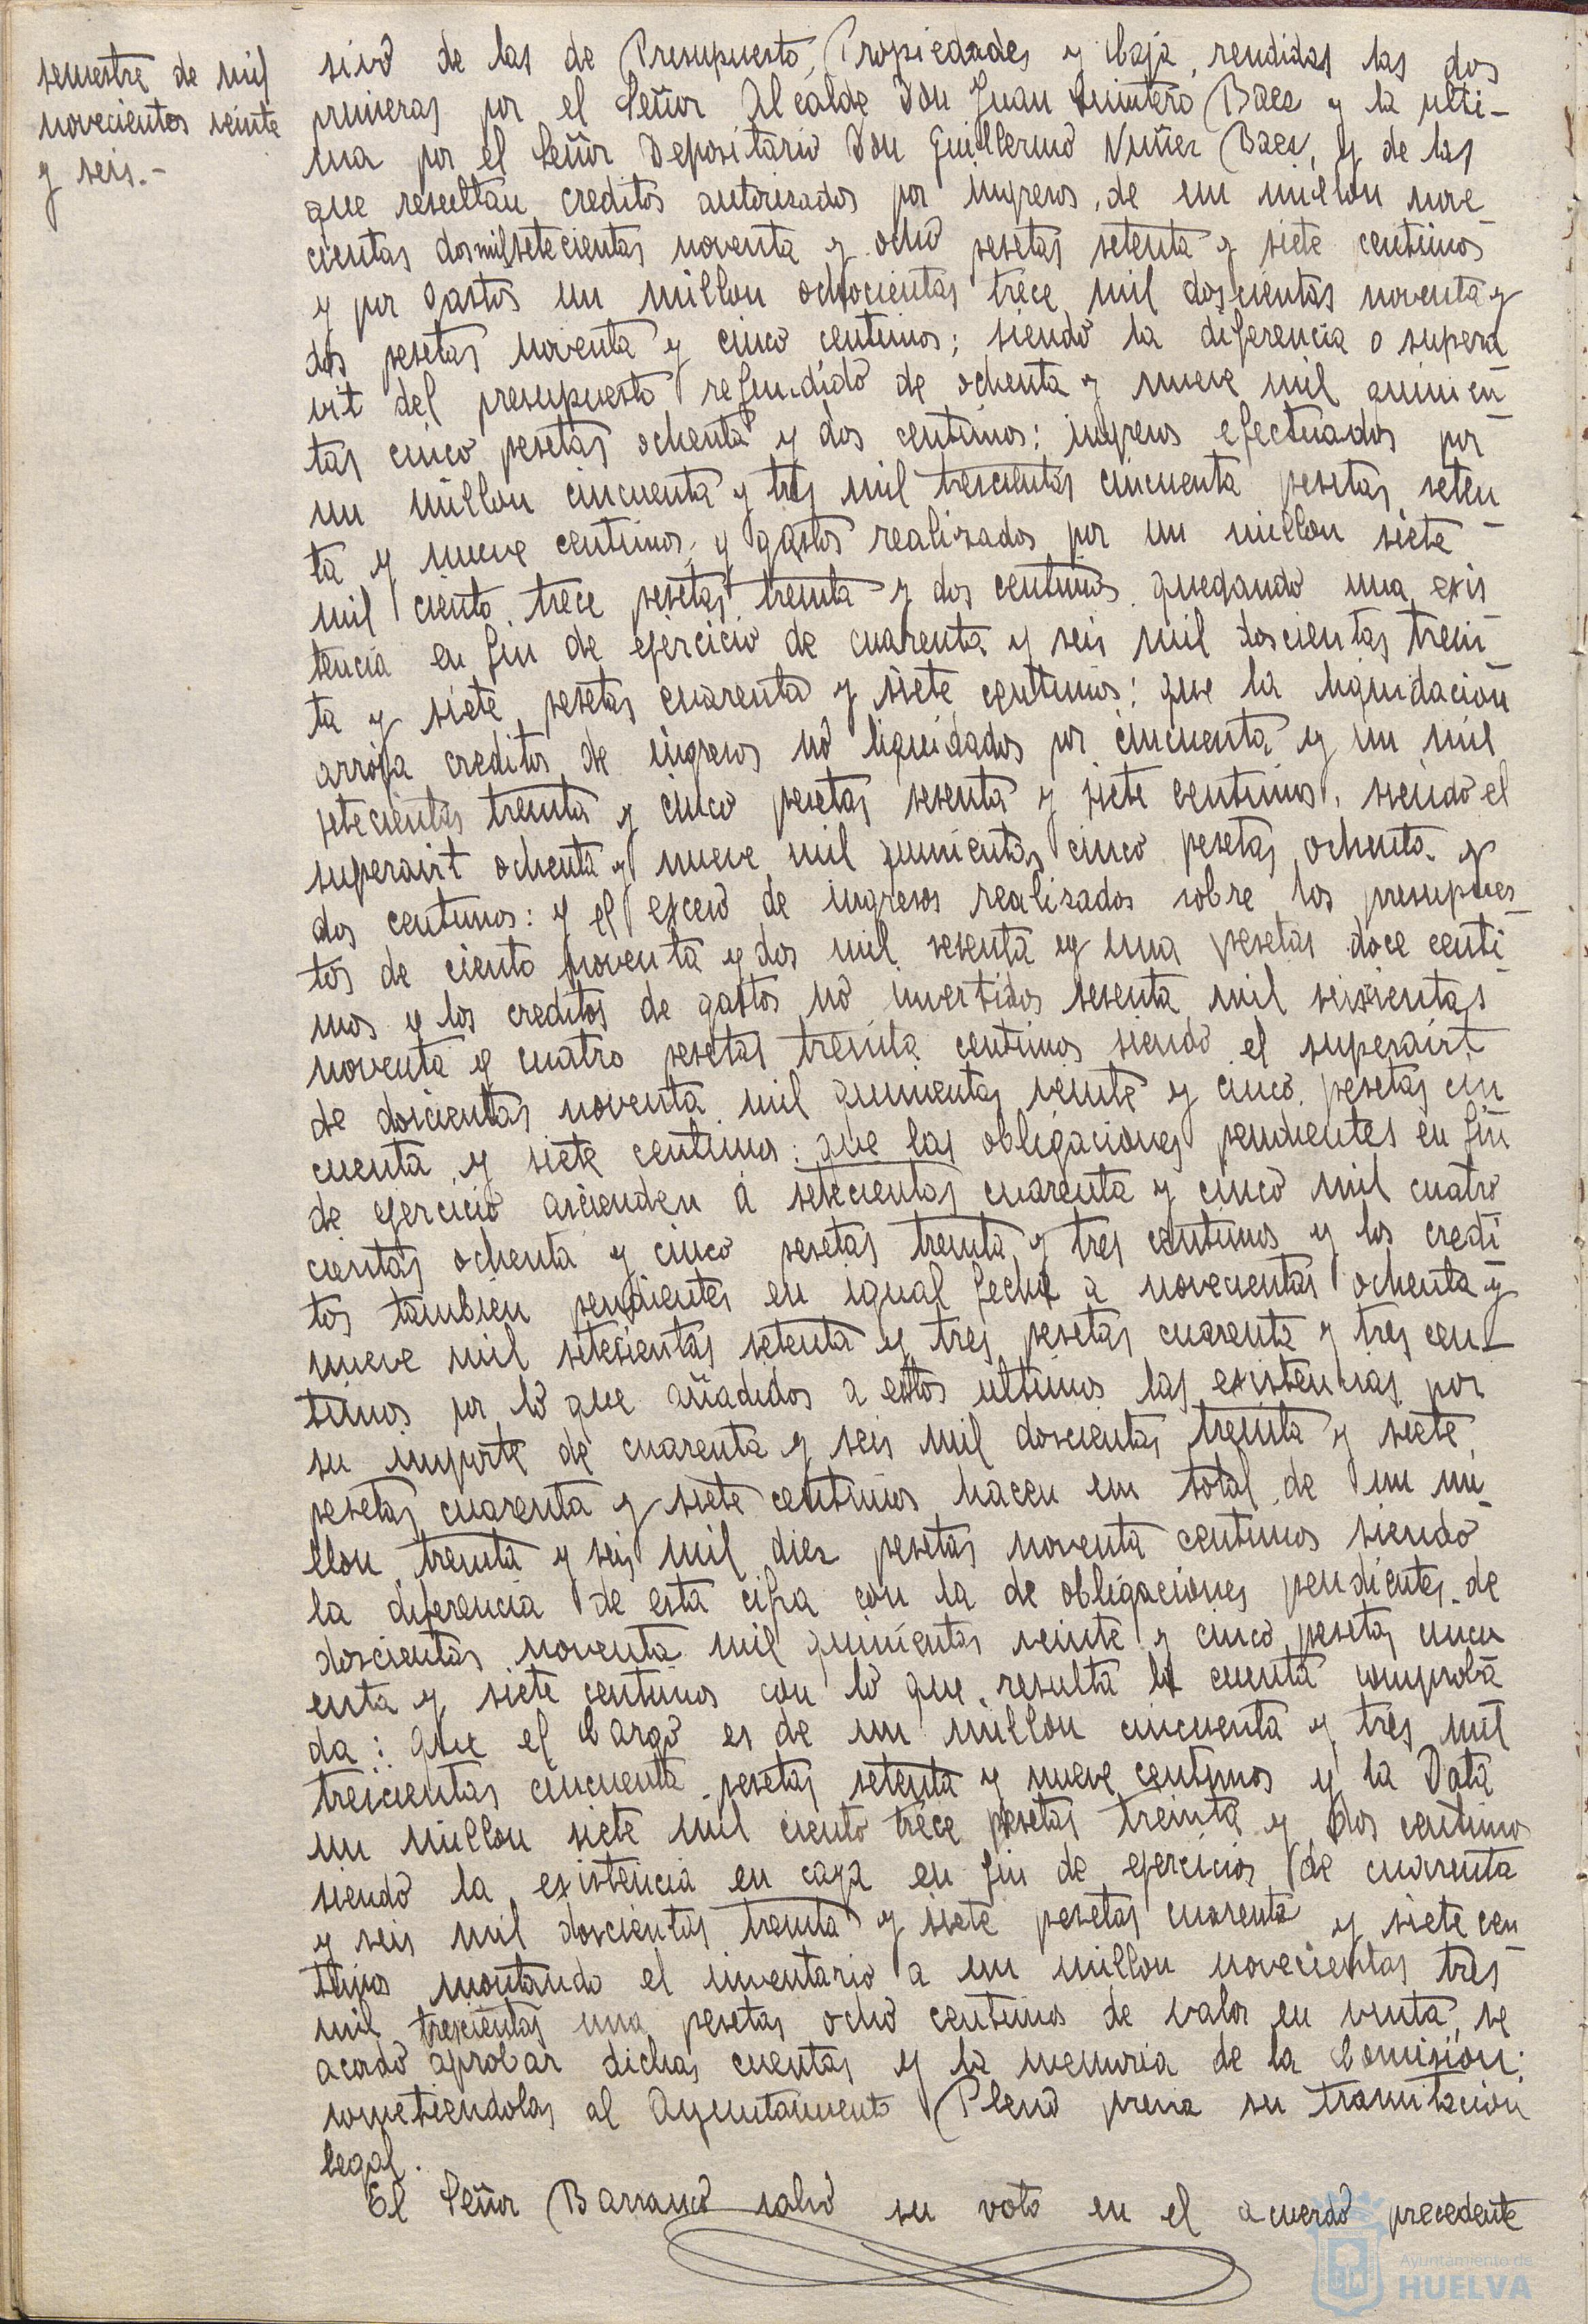 semestre de mil
novecientos veinte
y seis.-
sivo de las de Presupuesto, Propiedades y Caja, rendidas las dos
primeras por el Señor Alcalde Don Juan Quintero Baez y la ulti-
ma por el Señor Depositario Don Guillermo Nuñez Baez, y de las
que resultan creditos autorizados por ingresos, de un millon nove
cientas dos mil setecientas noventa y ocho pesetas setenta y siete centimos
y por Gastos un millon ochocientas trece mil doscientas noventa y
dos pesetas noventa y cinco centimos; siendo la diferencia o supera
vit del presupuesto refundido de ochenta y nueve mil quinien
tas cinco pesetas ochenta y dos centimos: ingresos efectuados por
un millon cincuenta y tres mil trescientas cincuenta pesetas seten
ta y nueve centimos, y gastos realizados por un millon siete
mil ciento trece pesetas treinta y dos centimos quedando una exis
tencia en fin de ejercicio de cuarenta y seis mil doscientas trein
ta y siete pesetas cuarenta y siete centimos: que la liquidacion
arroja creditos de ingresos no liquidados por cincuenta y un mil
setecientas treinta y cinco pesetas sesenta y siete centimos, siendo el
superavit ochenta y nueve mil quinientas cinco pesetas ochenta y
dos centimos: y el exceso de ingresos realizados sobre los presupues
tos de ciento noventa y dos mil sesenta y una pesetas doce centi
mos y los creditos de gastos no invertidos sesenta mil seiscientas
noventa y cuatro pesetas treinta centimos siendo el superavit
de doscientas noventa mil quinientas veinte y cinco pesetas cin
cuenta y siete centimos: que las obligaciones pendientes en fin
de ejercicio ascienden a setecientas cuarenta y cinco mil cuatro
cientas ochenta y cinco pesetas treinta y tres centimos y los credi
tos tambien pendientes en igual fecha a novecientas ochenta y
nueve mil setecientas setenta y tres pesetas cuarenta y tres cen
timos por lo que añadidos a estos ultimos las existencias por
su importe de cuarenta y seis mil doscientas treinta y siete
pesetas cuarenta y siete centimos hacen un total de un mi
llon treinta y seis mil diez pesetas noventa centimos siendo
la diferencia de esta cifra con la de obligaciones pendientes de
doscientas noventa mil quinientas veinte y cinco pesetas cincu
enta y siete centimos con lo que resulta la cuenta comproba
da: que el Cargo es de un millon cincuenta y tres mil
trescientas cincuenta pesetas setenta y nueve centimos y la Data
un millon siete mil ciento trece pesetas treinta y dos centimos
siendo la existencia en caja en fin de ejercicios de cuarenta
y seis mil doscientas treinta y siete pesetas cuarenta y siete cen
timos montando el inventario a un millon novecientas tres
mil trescientas una pesetas ocho centimos de valor en venta, se
acordó aprobar dichas cuentas y la memoria de la Comision;
sometiendolas al Ayuntamiento Pleno previa su tramitacion
legal.
El Señor Barranco salvó su voto en el acuerdo precedente
Ayuntamiento de
HUELVA